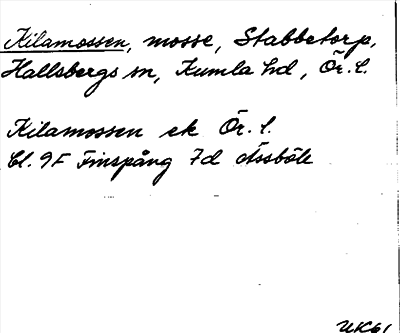 Kilamossen, mosse, Stabbetorp,
Hallsbergs sn, Kumla hd, Ör. l.
Kilamossen ek Ör. l.
Bl. 9F Finspång 7d Åssböle
UK61